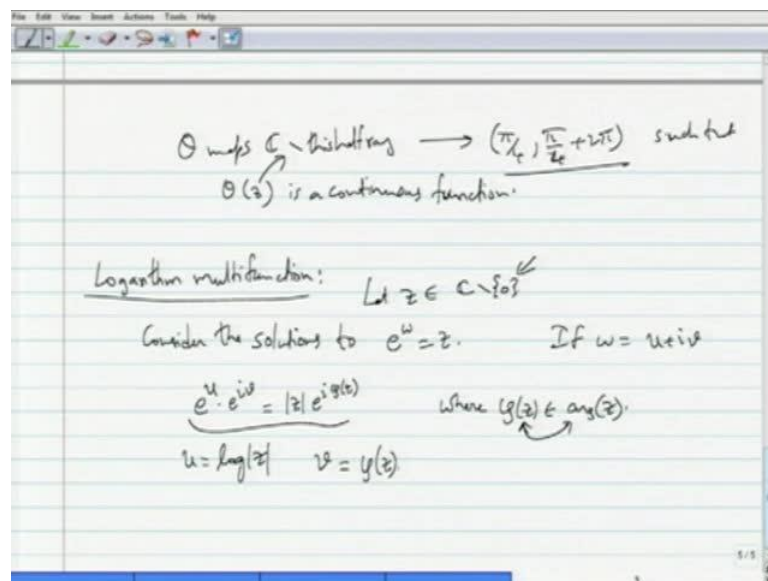 File Edit View Insert Actions Tools Help
θ maps ℂ \ this half ray → (π/4, π/4 + 2π) such that
θ(z) is a continuous function.
Logarithm multifunction: Let z ∈ ℂ \ {0}
Consider the solutions to e^w = z. If w = u+iv
e^u · e^{iv} = |z| e^{iφ(z)} where φ(z) ∈ arg(z).
u = log|z| v = φ(z)
5/5